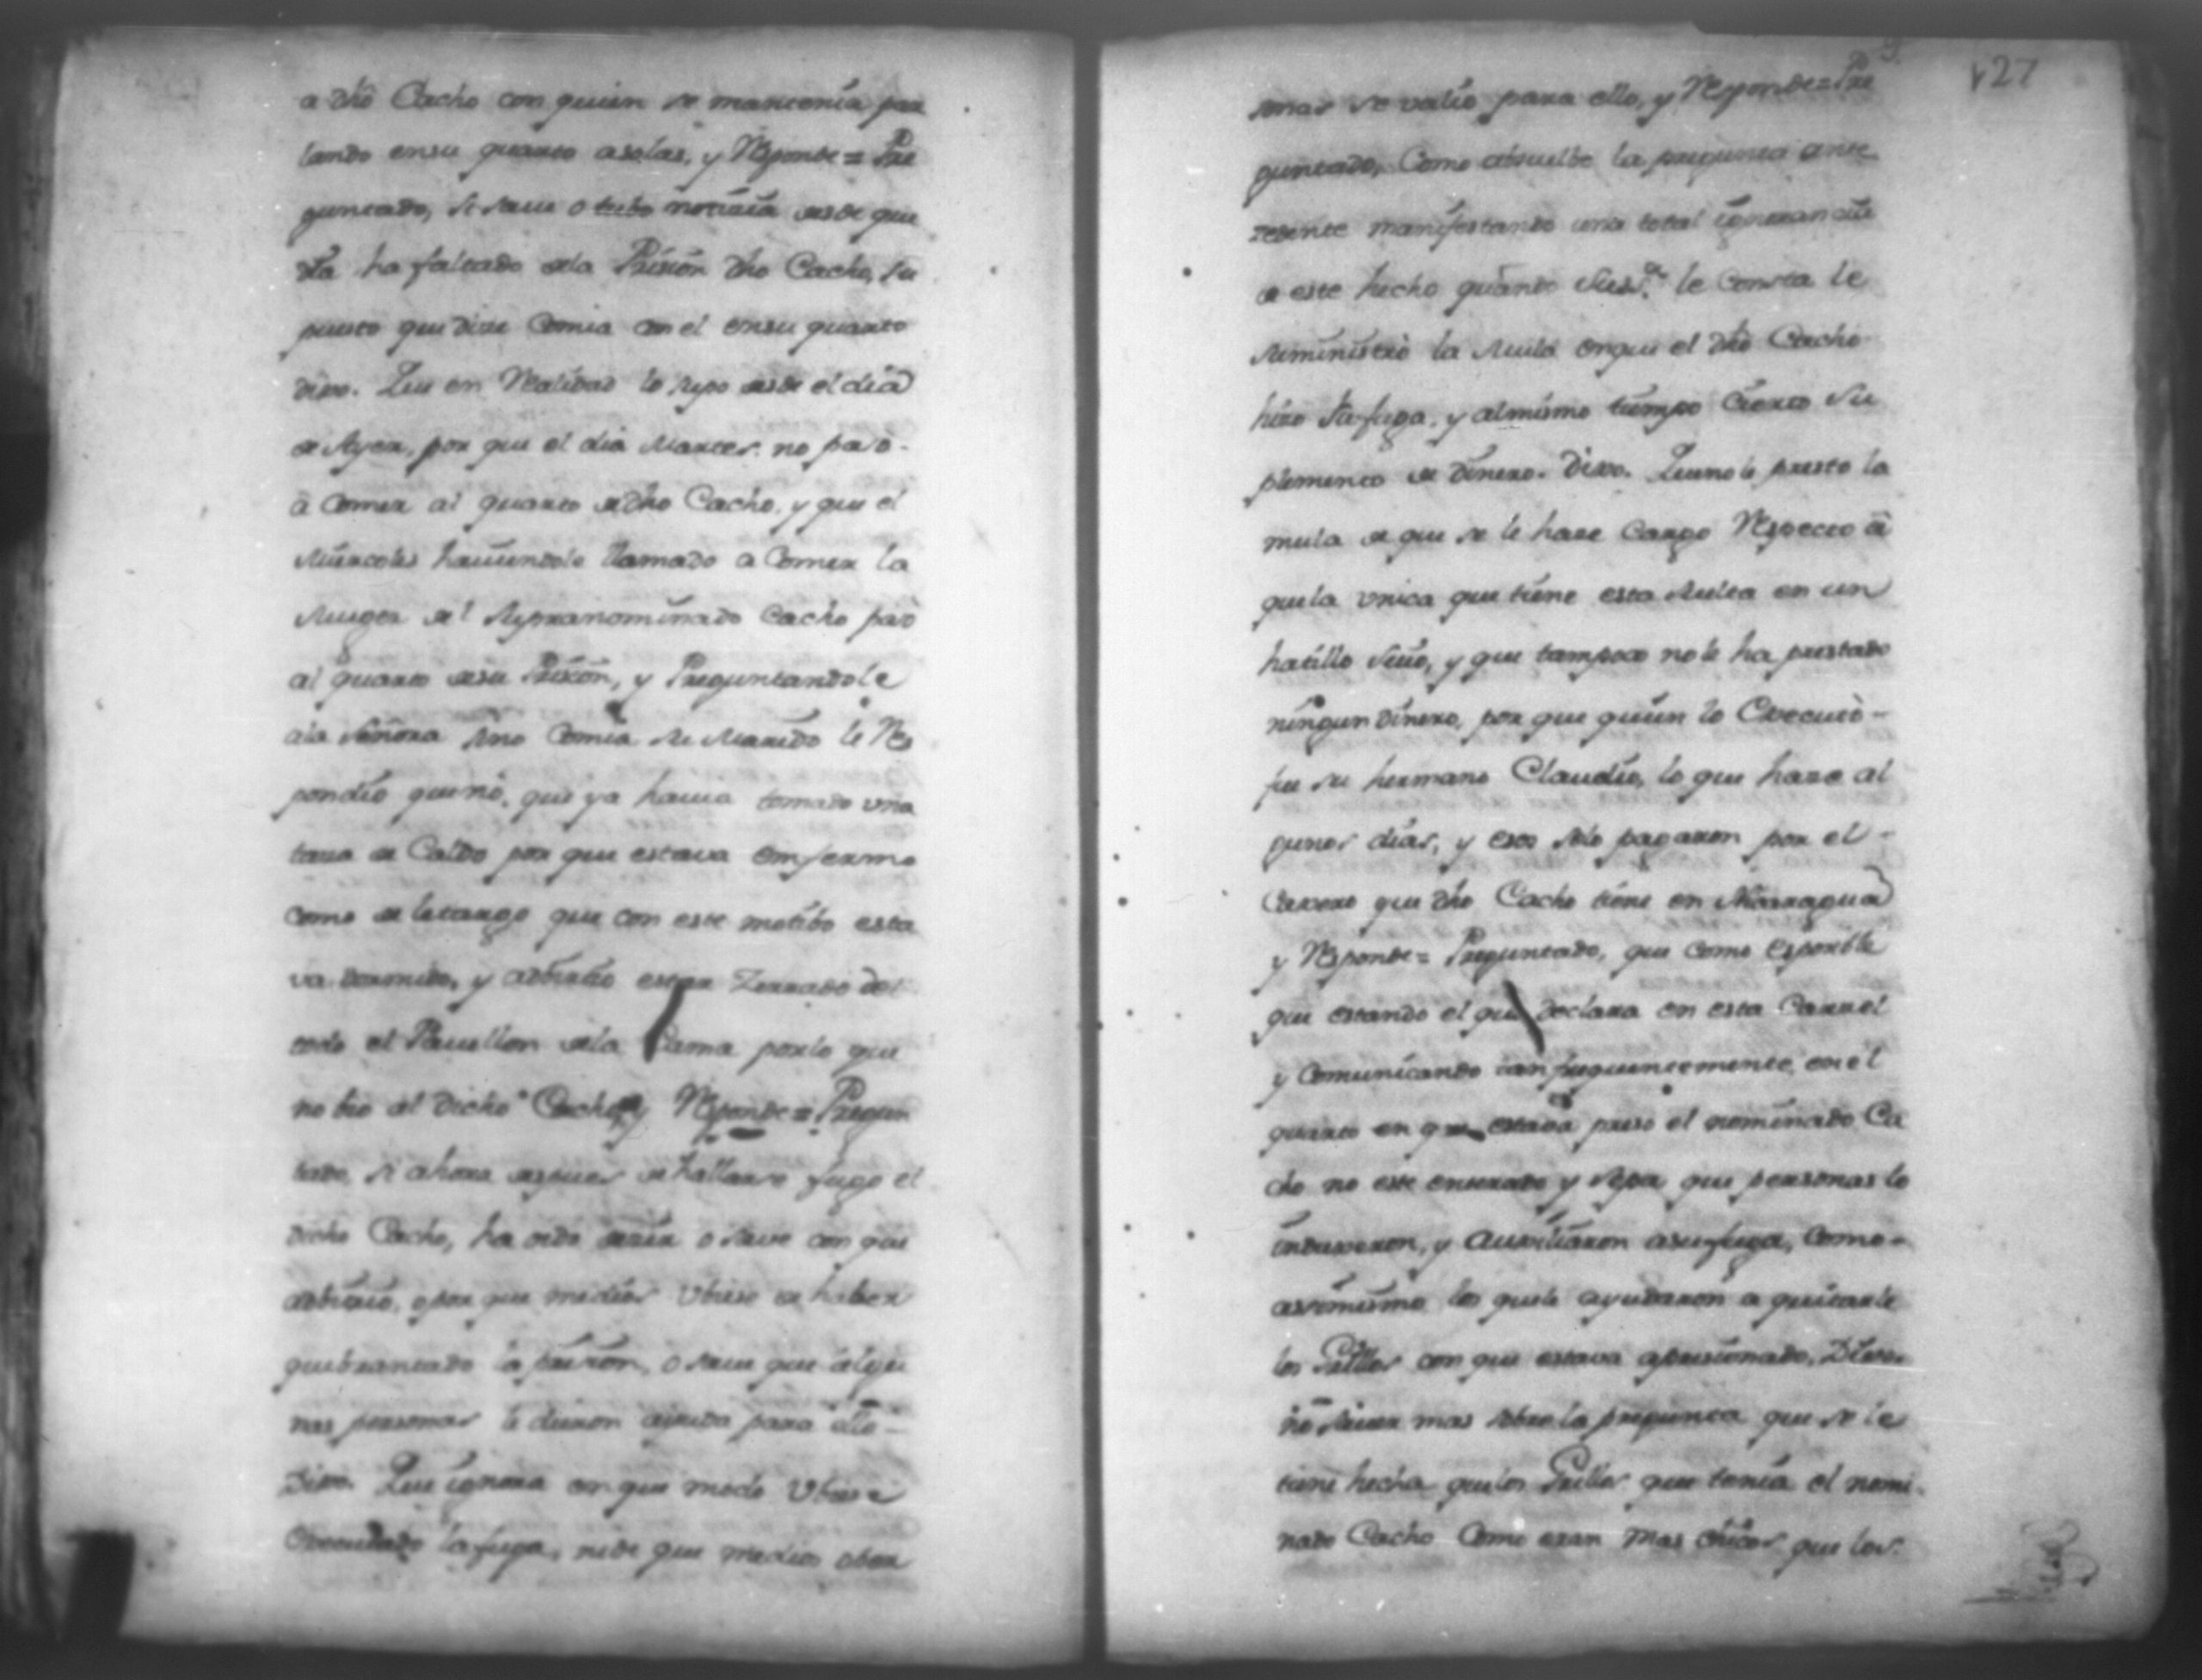 a dho Cacho con quien se mantenia par
lando ensu quarto asolas, y Responde = Pre
guntado, si save o tubo noticia desde que
dia ha faltado dela Prision dho Cacho, su
puesto que dice Comia con el ensu quarto
dixo. Que en Realidad lo supo desde el dia
de Ayer, por que el dia Martes no paso
à Comer al quarto de dho Cacho, y que el
Miercoles haviendole llamado a Comer la
Muger del supranominado Cacho pasò
al quarto desu Prixon, y Preguntandole
ala Señora sino Comia su Marido le Res
pondio que no, que ya havia tomado una
taza de Caldo por que estava enfermo
como de letargo que con este motibo esta
va dormido, y advirtio estar Zerrado del
todo el Pavellon dela Cama porlo que
no bio al Dicho Cacho, y Responde = Pregun
tado, si ahora despues de hallarse fugo el
dicho Cacho, ha oido decir o save con que
advitrio, o por que medios Ubiese de haber
quebrantado la prixon, o save que algu
nas personas le dieron ayuda para ello
Dixo. Que ignora en que modo Ubiese
Executado la fuga, nide que medios oper
sonas se valio para ello, y Responde = Pre
guntado, Como absuelbe la pregunta ante
zedente manifestando una total ignorancia
de este hecho quando le Consta le
suministrò la Mula enque el dho Cacho
hizo su fuga, y almismo tiempo Cierto Su
plemento de Dinero. Dixo. Que no le presto la
mula de que se le hace Cargo Respecto à
que la unica que tiene esta suelta en un
hatillo suio, y que tampoco nole ha prestado
ningun Dinero, por que quien lo Executò
fue su hermano Claudio, lo que hara al
gunos dias, y esos selo pagaron por el
que dho Cacho tiene en Nicaragua
y Responde = Preguntado, que como es posible
que estando el que Declara en esta Carzel
y Comunicando tan frequentemente en el
quarto en que estava preso el nominado Ca
cho no este enterado y sepa que personas lo
induxeron, y auxiliaron asu fuga, Como
assimismo los quele ayudaron a quitarle
los Grillos con que estava aprisionado, Dixo.
no saver mas sobre la pregunta que se le
tiene hecha que los Grillos que tenia el nomi
nado Cacho Como eran mas chicos que los
127